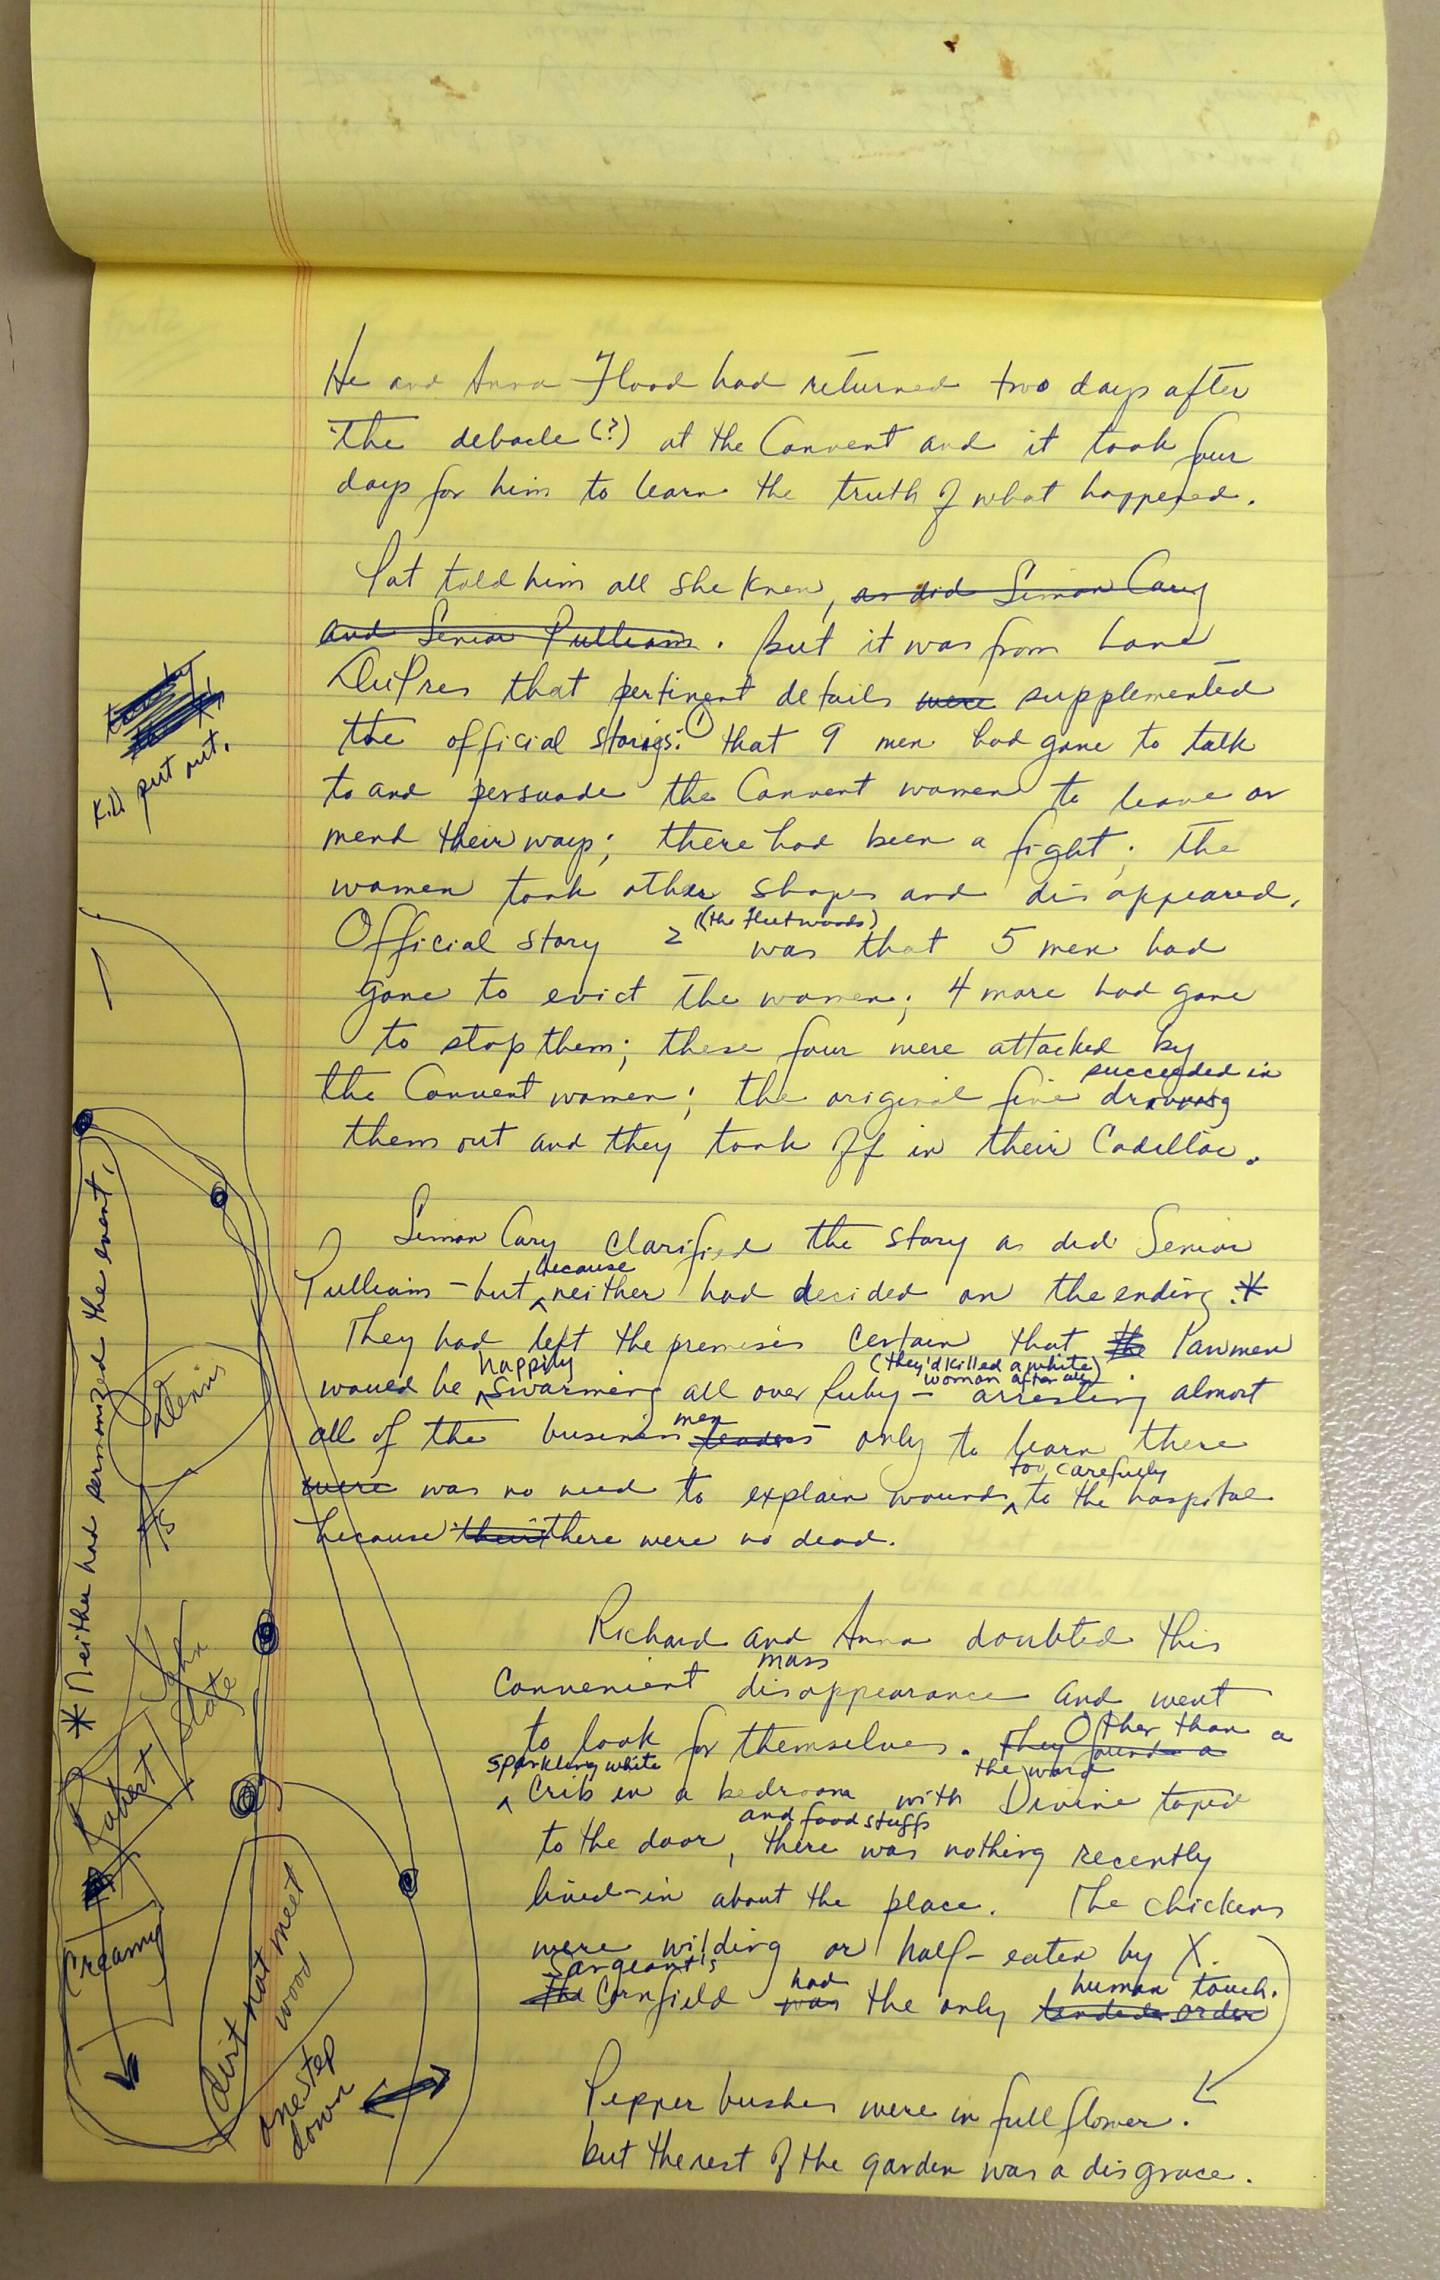 He and Anna Flood had returned two days after
the debacle (?) at the Convent and it took four
days for him to learn the truth of what happened.
Pat told him all she knew, as did Simon Cary
and Senior Pulliam. But it was from Lone
DuPres that pertinent details were supplemented
the official stories: ① that 9 men had gone to talk
to and persuade the Convent women to leave or
mend their ways; there had been a fight; the
women took other shapes and disappeared.
(the Fleetwoods)
Official story 2 was that 5 men had
gone to evict the women; 4 more had gone
to stop them; these four were attacked by
succeeded in
the Convent women; the original five driving
them out and they took off in their Cadillac.
Simon Cary clarified the story as did Senior
because
Pulliam - but ^ neither had decided on the ending. *
They had left the premises certain that the lawmen
happily (they'd killed a white
woman after all)
would be ^ swarming all over Ruby - arresting almost
men
all of the business leaders only to learn there
too carefully
were was no need to explain wounds ^ to the hospital
because their there were no dead.
Richard and Anna doubted this
mass
convenient disappearance and went
Other than a
to look for themselves. They found a
sparkling white the word
^ crib in a bedroom with Divine taped
and food stuffs
to the door, there was nothing recently
lived-in about the place. The chickens
were wilding or half-eaten by X.
Sargeant's had human touch.
The Cornfield was the only tended order
Pepper bushes were in full flower.
but the rest of the garden was a disgrace.
Kill put out.
* Neither had sermonized the event.
John
State
Robert
Creamy
dirt not meet
wood
one step
down